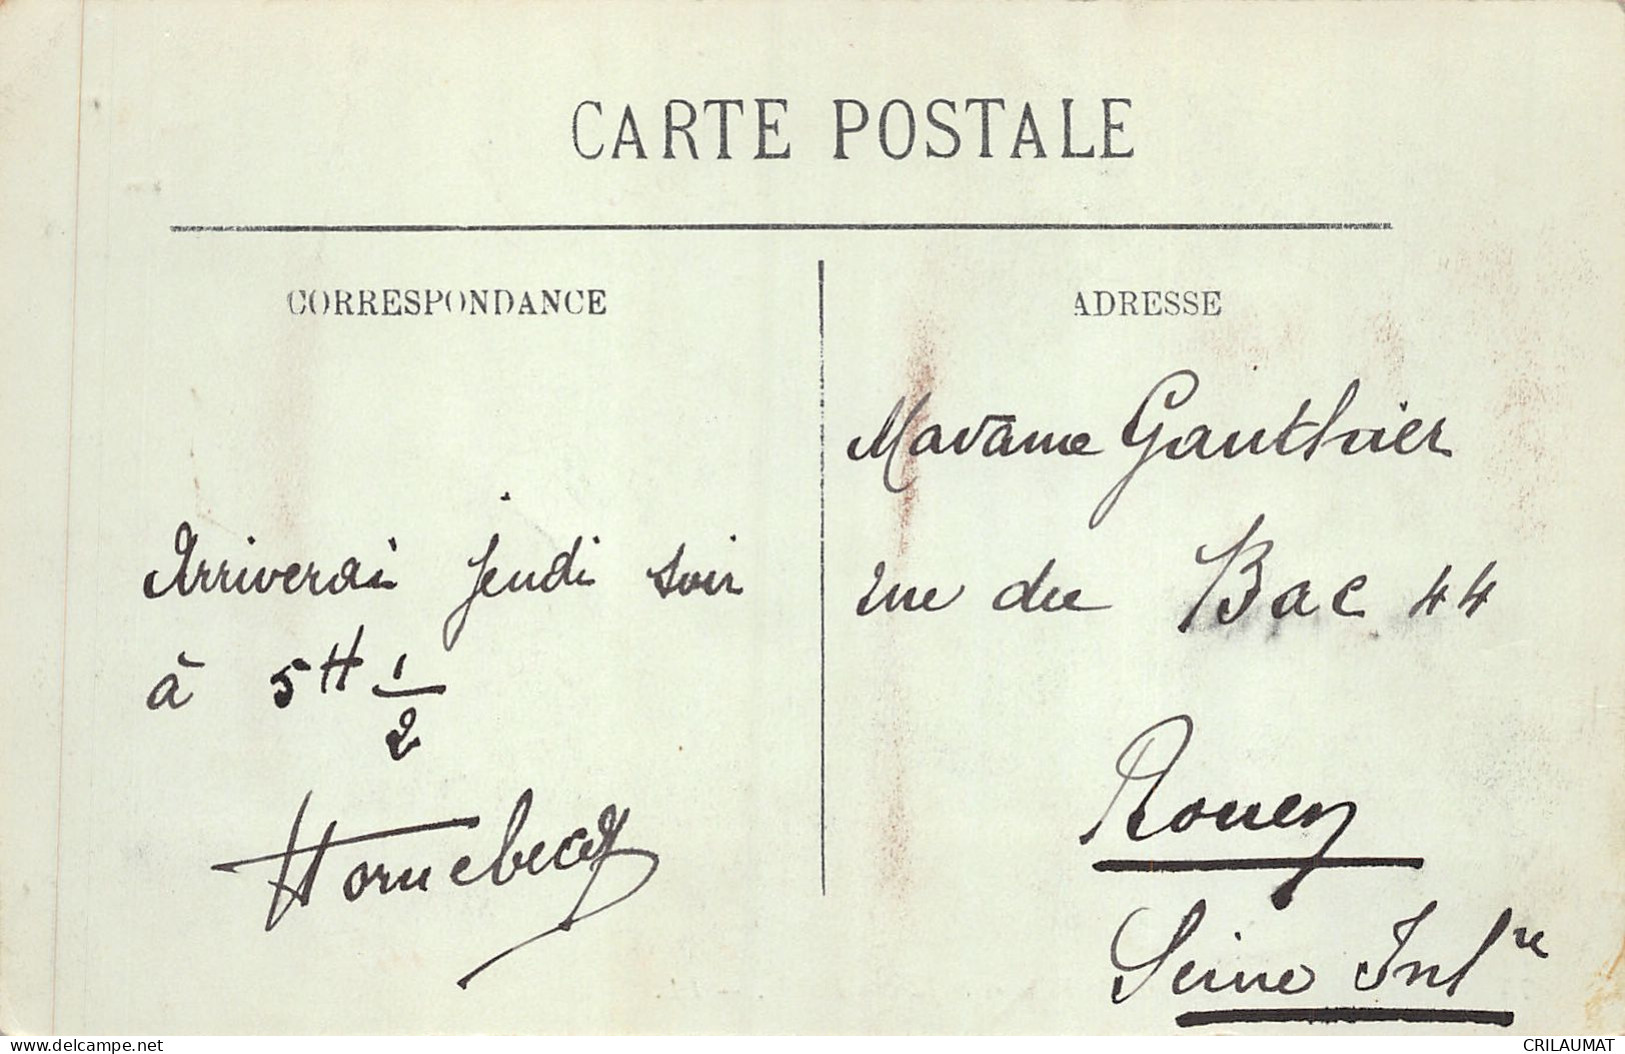 CARTE POSTALE
CORRESPONDANCE
Arriverai jeudi soir
à 5H 1/2
ADRESSE
Madame Gauthier
rue du Bac 44
Rouen
Seine Infre
www.delcampe.net
CRILAUMAT